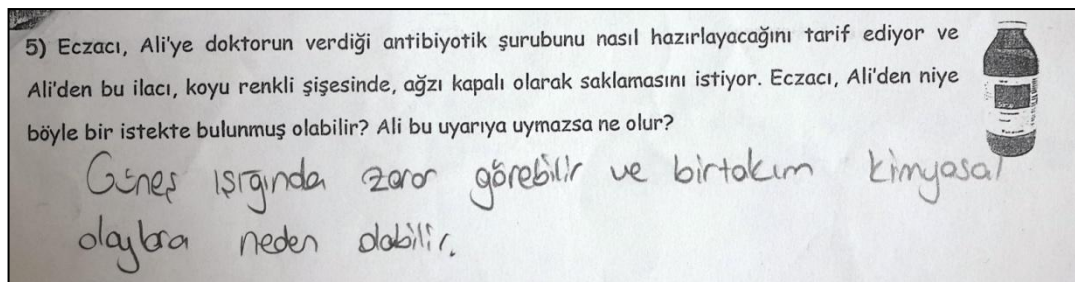 5) Eczacı, Ali'ye doktorun verdiği antibiyotik şurubunu nasıl hazırlayacağını tarif ediyor ve
Ali'den bu ilacı, koyu renkli şişesinde, ağzı kapalı olarak saklamasını istiyor. Eczacı, Ali'den niye
böyle bir istekte bulunmuş olabilir? Ali bu uyarıya uymazsa ne olur?
Güneş ışığında zarar görebilir ve birtakım kimyasal
olaylara neden olabilir.